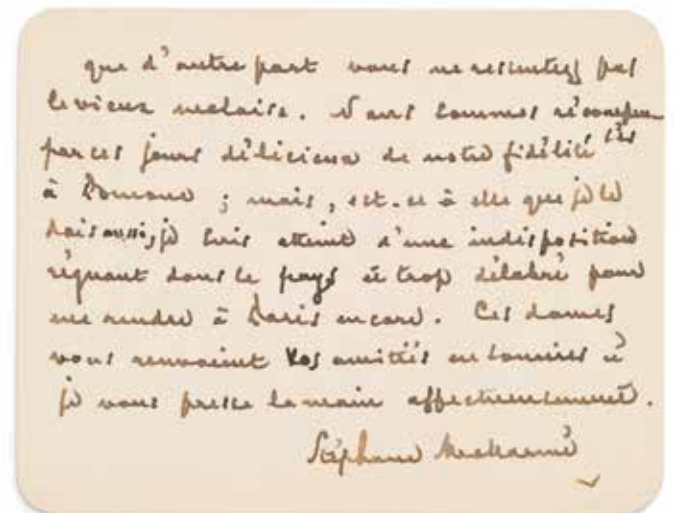 que d'autre part vous ne ressentez pas
le vieux malaise. Nous sommes récompen
par ces jours délicieux de notre fidélité sés
à ; mais, est-ce à elle que je le
dois aussi, je suis atteint d'une indisposition
régnant dans le pays et trop délabré pour
me rendre à Paris encore. Ces dames
vous renvoient vos amitiés en sourires et
je vous presse la main affectueusement.
Stéphane Mallarmé